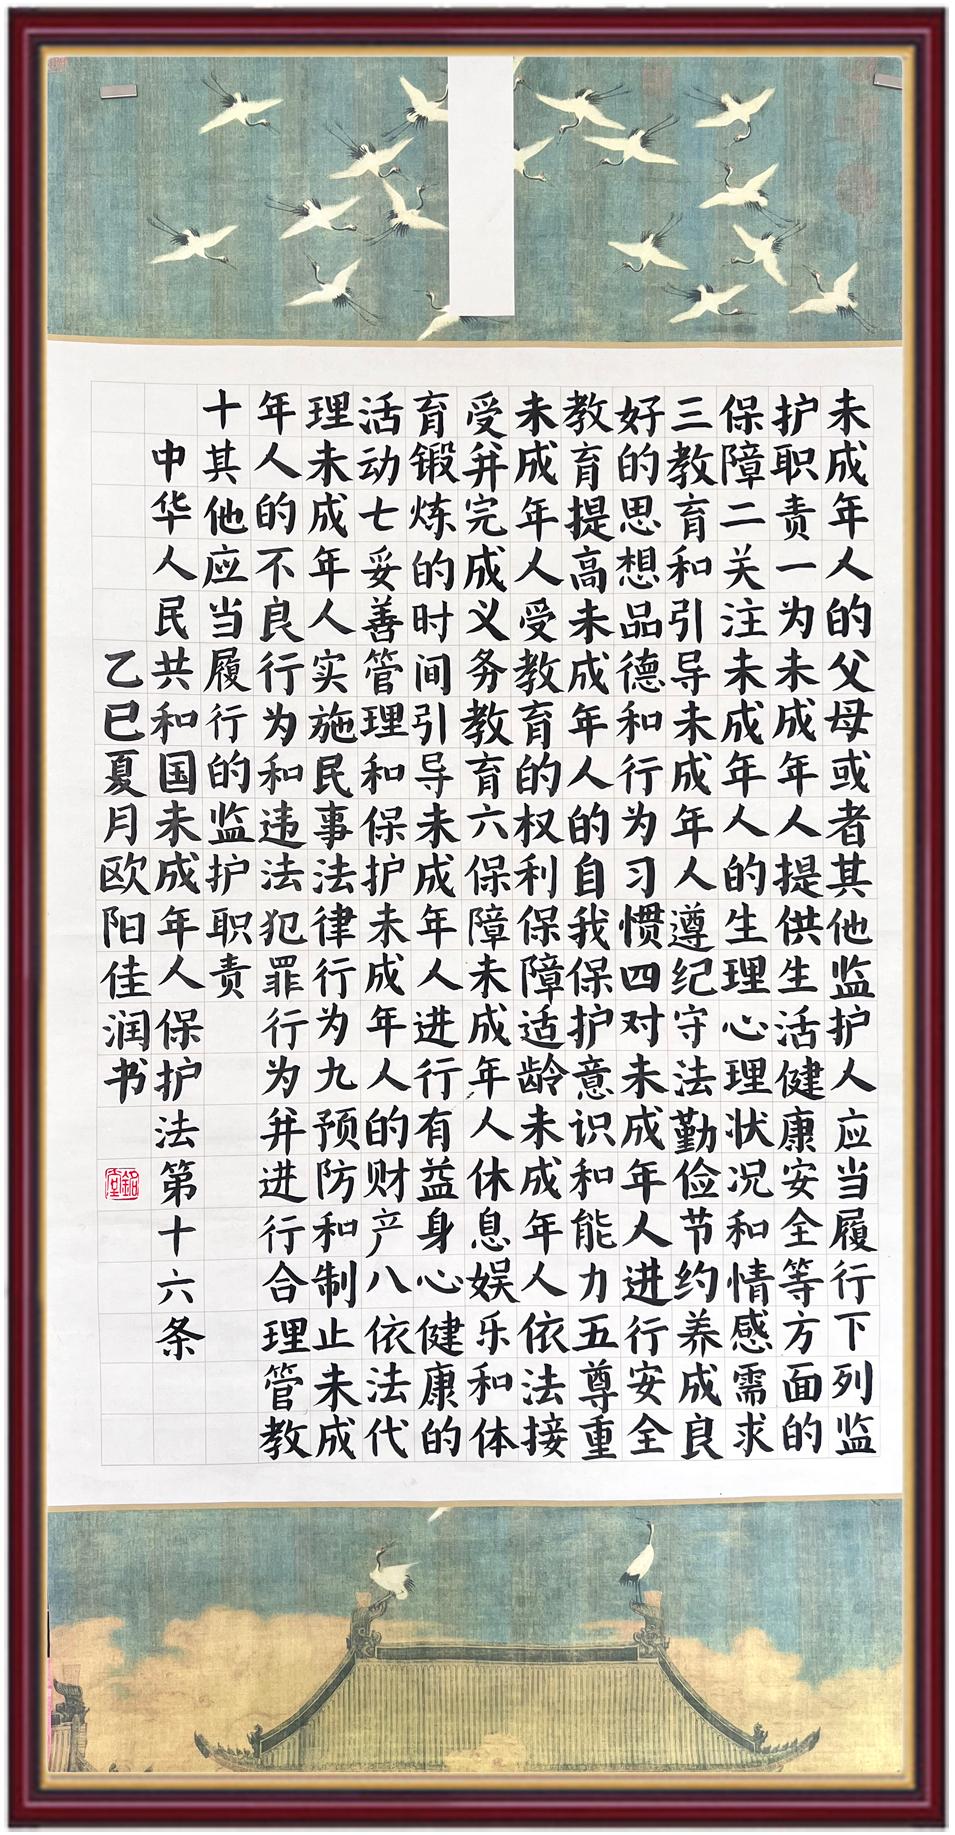 未成年人的父母或者其他监护人应当履行下列监
护职责一为未成年人提供生活健康安全等方面的
保障二关注未成年人的生理心理状况和情感需求
三教育和引导未成年人遵纪守法勤俭节约养成良
好的思想品德和行为习惯四对未成年人进行安全
教育提高未成年人的自我保护意识和能力五尊重
未成年人受教育的权利保障适龄未成年人依法接
受并完成义务教育六保障未成年人休息娱乐和体
育锻炼的时间引导未成年人进行有益身心健康的
活动七妥善管理和保护未成年人的财产八依法代
理未成年人实施民事法律行为九预防和制止未成
年人的不良行为和违法犯罪行为并进行合理管教
十其他应当履行的监护职责
中华人民共和国未成年人保护法第十六条
乙巳夏月欧阳佳润书